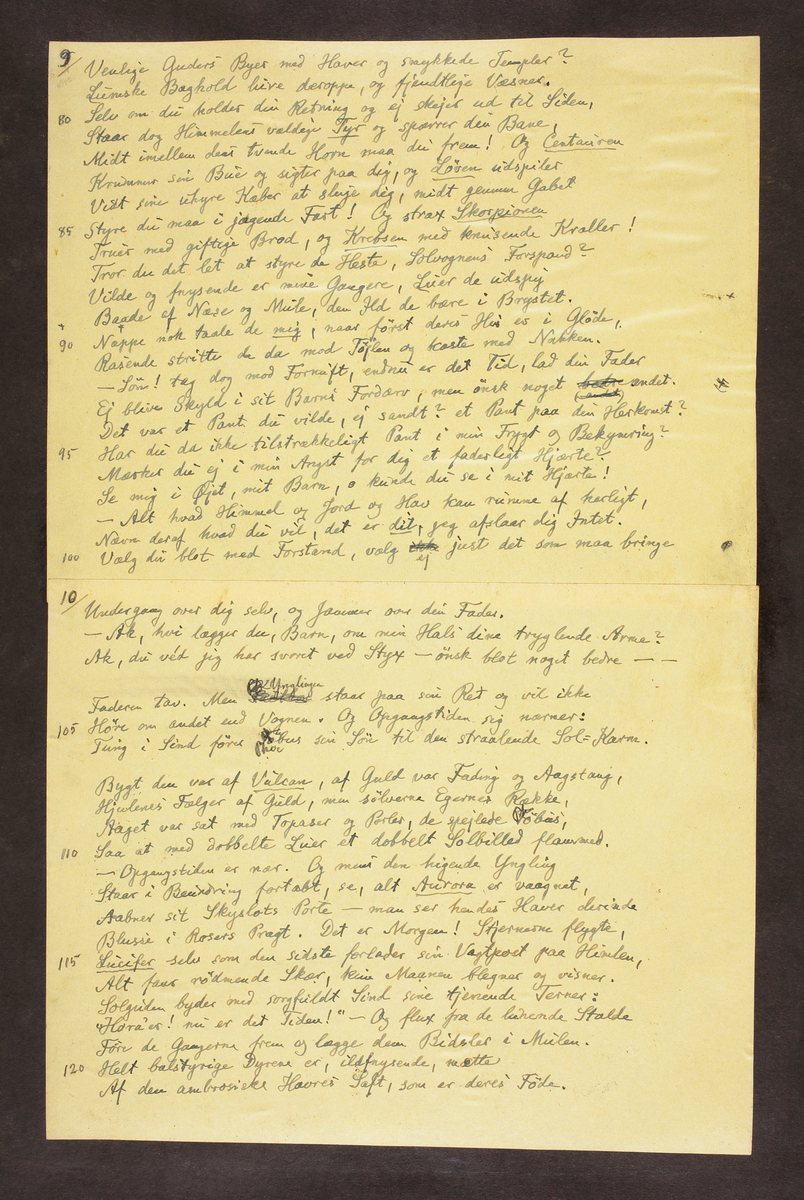 9
Venlige Guders Byer med Haver og smykkede Templer?
Lumske Baghold lure deroppe, og fjendtlige Væsner.
80 Selv om du holder din Retning og ej skejer ud til Siden,
Staar dog Himmelens vældige Tyr og spærrer din Bane,
Midt imellem dens tvende Horn maa du frem! Og Centauren
Krummer sin Bue og sigter paa dig, og Løven udspiler
Vidt sine uhyre Kæber at sluge dig, midt gennem Gabet
85 Styre du maa i jagende Fart! Og strax Skorpionen
Truer med giftige Brod, og Krebsen med knusende Kraller!
Tror du det let at styre de Heste, Solvognens Forspand?
Vilde og fnysende er mine Gangere, Luer de udspy
Baade af Næse og Mule, den Ild de bære i Brystet.
90 Nåppe nok taale de mig, naar først deres Hu es i Gløde,
Rasende stritte de da mod Töjlen og kaste med Nakken.
— Søn! tag dog mod Fornuft, endnu er det Tid, lad din Fader
Ej blive Skyld i sit Barns Fordærv, men ønsk noget bedre andet.
(andet)
Det var et Pant du vilde, ej sandt? et Pant paa din Herkomst?
95 Har du da ikke tilstrækkeligt Pant i min Frygt og Bekymring?
Mærker du ej i min Angst for dig et faderligt Hjærte?
Se mig i Øjet, mit Barn, o kunde du se i mit Hjærte!
— Alt hvad Himmel og Jord og Hav kan rumme af herligt,
Nævn deraf hvad du vil, det er dit, jeg afslaar dig Intet.
100 Vælg du blot med Forstand, vælg ikke just det som maa bringe
ej
10
Undergang over dig selv, og Jammer over din Fader.
— Ak, hvi lægger du, Barn, om min Hals dine tryglende Arme?
Ak, du véd jeg har svoret ved Styx — ønsk blot noget bedre — —
Ynglingen
Faderen tav. Men staar paa sin Ret og vil ikke
105 Høre om andet end Vognen. Og Opgangstiden sig nærmer:
Tung i Sind fører Föbus sin Søn til den straalende Sol=Karm.
Phoi
Bygt den var af Vulcan, af Guld var Fading og Vagstang,
Hjulenes Fælger af Guld, men sølverne Egernes Række,
Aaget var sat med Topaser og Perler, de spejlede Föbus,
110 Saa at med dobbelte Luer et dobbelt Solbilled flammed.
— Opgangstiden er nær. Og mens den higende Yngling
Staar i Beundring fortabt, se, alt Aurora er vaagnet,
Aabner sit Skyslots Porte — man ser hendes Haver derinde
Blusse i Rosers Pragt. Det er Morgen! Stjernerne flygte,
115 Lucifer selv som den sidste forlader sin Vagtpost paa Himlen,
Alt faar rødmende Skær, kun Maanen blegner og visner.
Solguden byder med sorgfuldt Sind sine tjenende Terner:
"Hora'er! nu er det Tiden!" — Og flux fra de luende Stalde
Føre de Gangerne frem og lægge dem Bidsler i Mulen.
120 Helt balstyrige Dyrene er, ildfnysende, mætte
Af den ambrosiske Havres Saft, som er deres Føde.